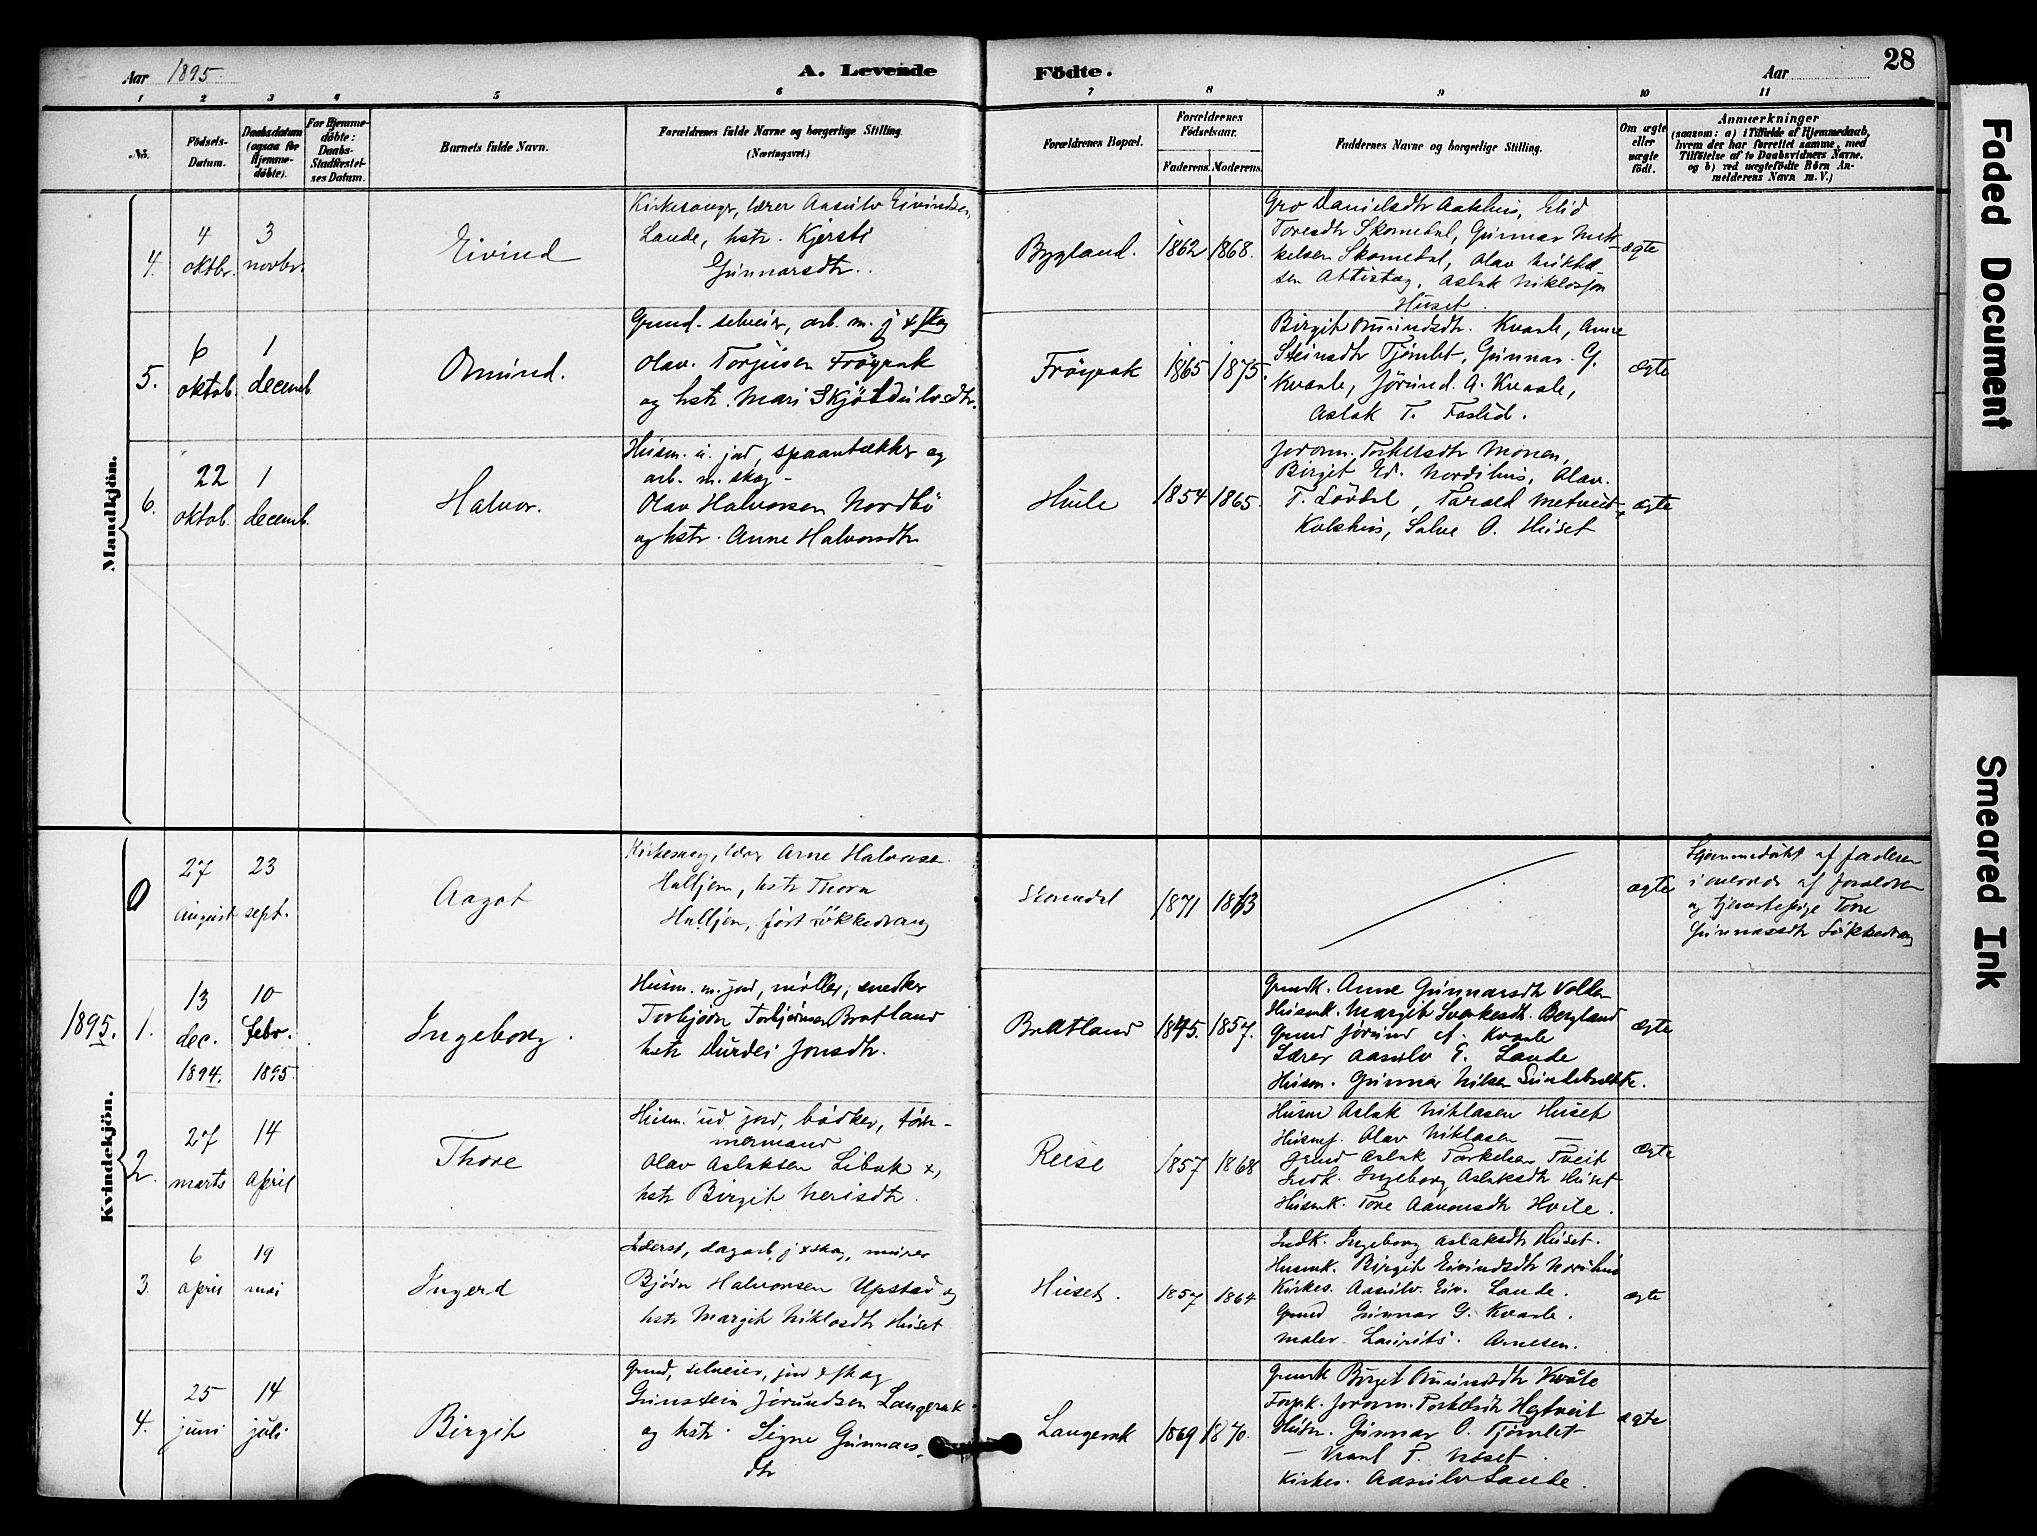 Aar 1895
A. Levende Födte.
Aar
28
1 2 3 4 5 6 7 8 9 10 11
No.
Födsels-Datum.
Daabsdatum (ogsaa for Hjemme-döbte).
For Hjemme-döbte: Daabs-Stadfæstel-ses Datum.
Barnets fulde Navn.
Forældrenes fulde Navne og borgerlige Stilling. (Næringsvei.)
Forældrenes Bopæl.
Forældrenes Födselsaar.
Faderens. Moderens.
Faddernes Navne og borgerlige Stilling.
Om ægte eller uægte født.
Anmærkninger
(saasom: a) i Tilfælde af Hjemmedaab, hvem der har forrettet samme, med Tilföielse af to Daabsvidners Navne, og b) ved uægtefödte Börn An-melderens Navn m. V.)
Mandkjön.
4.
4 oktbr.
3 novbr.
Eivind
Kirkesanger, lærer Aasulv Eivindsen
Lande, hstr. Kjersti
Gunnarsdtr.
Bygland.
1862 1868.
Gro Danielsdtr Aakhus, Elid
Toresdtr Skomedal, Gunnar
kelsen Skomedal, Olav
sen Attistog, Aslak Niklosson
Huset.
ægte
5.
6 oktob.
1 decemb
Omund.
Grund. selveier, arb. m. j & skog
Olav Torjusen Fröyrak
og hstr. Mari Skjöldulvsdtr.
Fröyrak
1865 1875.
Birgit Omundsdtr. Kvaale, Anne
Steinsdtr Tjömlet, Gunnar G.
Kvaale, Jörund A. Kvaale,
Aslak T. Faslid.
ægte
6.
22 oktob.
1 decemb.
Halvor.
Husm. u. jord, spaantækker og
arb. m. skog
Olav Halvorsen Nordbö
og hstr. Anne Halvorsdtr
Hvile
1854 1865.
Jorunn Torkelsdtr Monen,
Birgit Ed. Nordihus, Olav
T. Lövdal, Tarald Metveid
Kvlehus, Salve O. Huset
ægte
1895.
Kvindekjön.
0
27 august
23 sept.
Aagot
Kirkesang, lærer Arne Halvorsen
Halljem, hstr Thora
Halljem, født Løkkedrang
Skomedal
1871 1863
ægte
Hjemmedøbt af faderen
i overvær af forældre
og tjenestepige Tone
Gunnarsdtr Løkkedrang
1.
13 dec. 1894.
10 febr. 1895
Ingeborg.
Husm. m. jord, møller, snedker
Torbjørn Torbjørnsen Bratland
hstr Durdei Jonsdtr.
Brattland
1845. 1857.
Grundk. Anne Gunnarsdtr Vollen
Husmk. Margit Sverkesdtr. Bergland
Grund Jörund A. Kvaale
Lærer Aasulv E. Lande
Husm. Gunnar Nilsen Sundebrække.
ægte
2.
27 marts
14 April
Thone
Husm. ud jord, bødker, töm-
mermand
Olav Aslaksen Libak &
hstr Birgit Nerisdtr.
Reise
1857 1868
Husm Aslak Niklasen Huset
Husmf. Olav Niklasen —
Grund Aslak Torkelsen Tveit
Indk. Ingeborg Aslaksdtr Huset
Husmk. Tone Aanonsdtr Hvile.
ægte
3.
6 april
19 mai
Ingerd
Inderst, dagarb j & skog, murer
Bjørn Halvorsen Upstad og
hstr Margit Niklosdtr Huset
Huset.
1857 1864
Indk. Ingeborg Aslaksdtr Huset.
Husmk. Birgit Eivindsdtr Nordihus
Kirkes. Aasulv Eiv. Lande.
Grund Gunnar G. Kvaale.
maler Laurits Arnesen.
ægte
4.
25 juni
14 juli
Birgit
Grund, selveier, jord & skog
Gunstein Jörundsen Langerak
og hstr. Signe Gunnars
dtr
Langerak
1869 1870.
Grundk Birget Omundsdtr Kvåle
Forpk. Jorunn Torkelsdtr Hegtveit
Husm. Gunnar O. Tjömlet
— T. Neset.
Kirkes. Aasulv Lande.
ægte
Faded Document
Smeared Ink